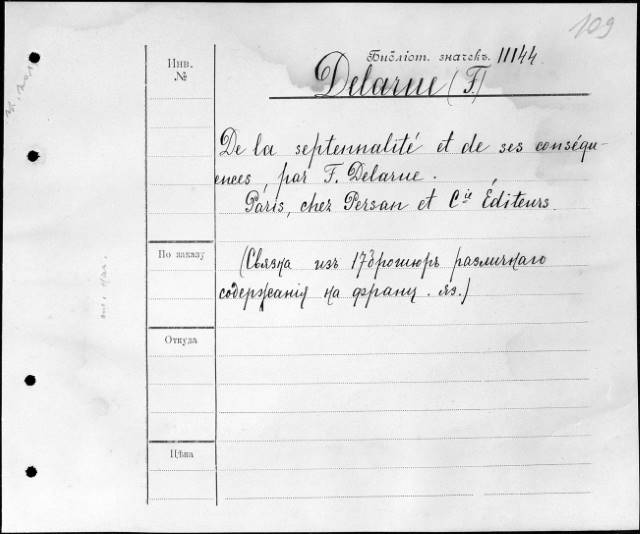 109
Библіот. значекъ. 11144
Инв.
№
Delarue (F.)
De la septennalité et de ses conséqu-
ences, par F. Delarue.
Paris, chez Persan et Cie Éditeurs
По заказу
(Связка изъ 17 брошюръ различнаго
содержанія на франц. яз.)
Откуда
Цѣна